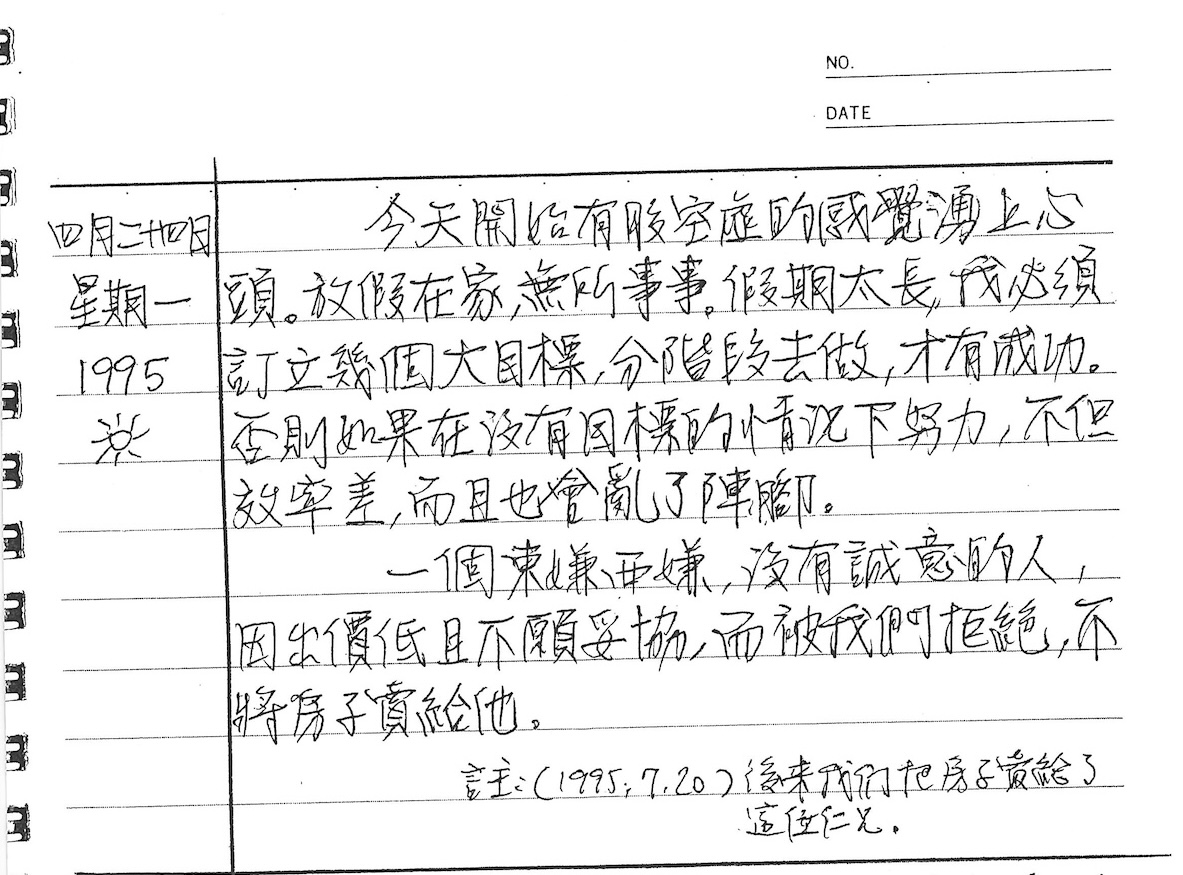 NO.
DATE
四月二十四日
星期一
1995
今天開始有股空虛的感覺湧上心
頭。放假在家,無所事事。假期太長,我必須
訂立幾個大目標,分階段去做,才有成功。
否則如果在沒有目標的情況下努力,不但
效率差,而且也會亂了陣腳。
一個東嫌西嫌,沒有誠意的人,
因出價低且不願妥協,而被我們拒絕,不
將房子賣給他。
註:(1995;7.20)後来我们把房子賣給了
這位仁兄.